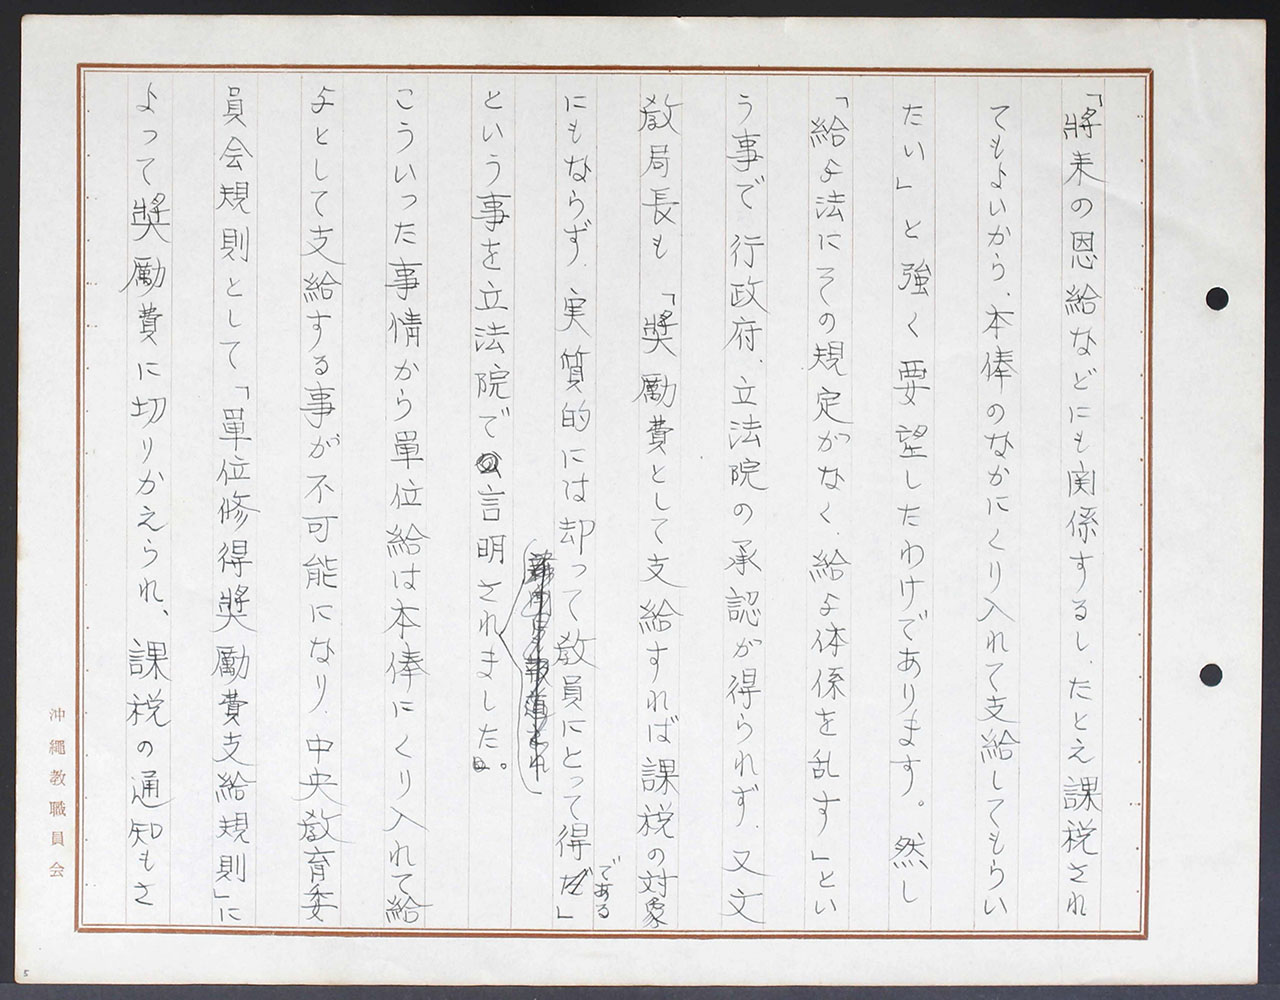 「将来の恩給などにも関係するし、たとえ課税され
てもよいから、本俸のなかにくり入れて支給してもらい
たい」と強く要望したわけであります。然し
「給よ法にその規定がなく、給よ体係を乱す」とい
う事で行政府、立法院の承認が得られず、又文
教局長も「奬励費として支給すれば課税の対象
にもならず、実質的には却って教員にとって得である」
という事を立法院で言明されました。
こういった事情から單位給は本俸にくり入れて給
よとして支給する事が不可能になり、中央教育委
員会規則として「單位修得奬励費支給規則」に
よって奬励費に切りかえられ、課税の通知もさ
沖繩教職員会
5